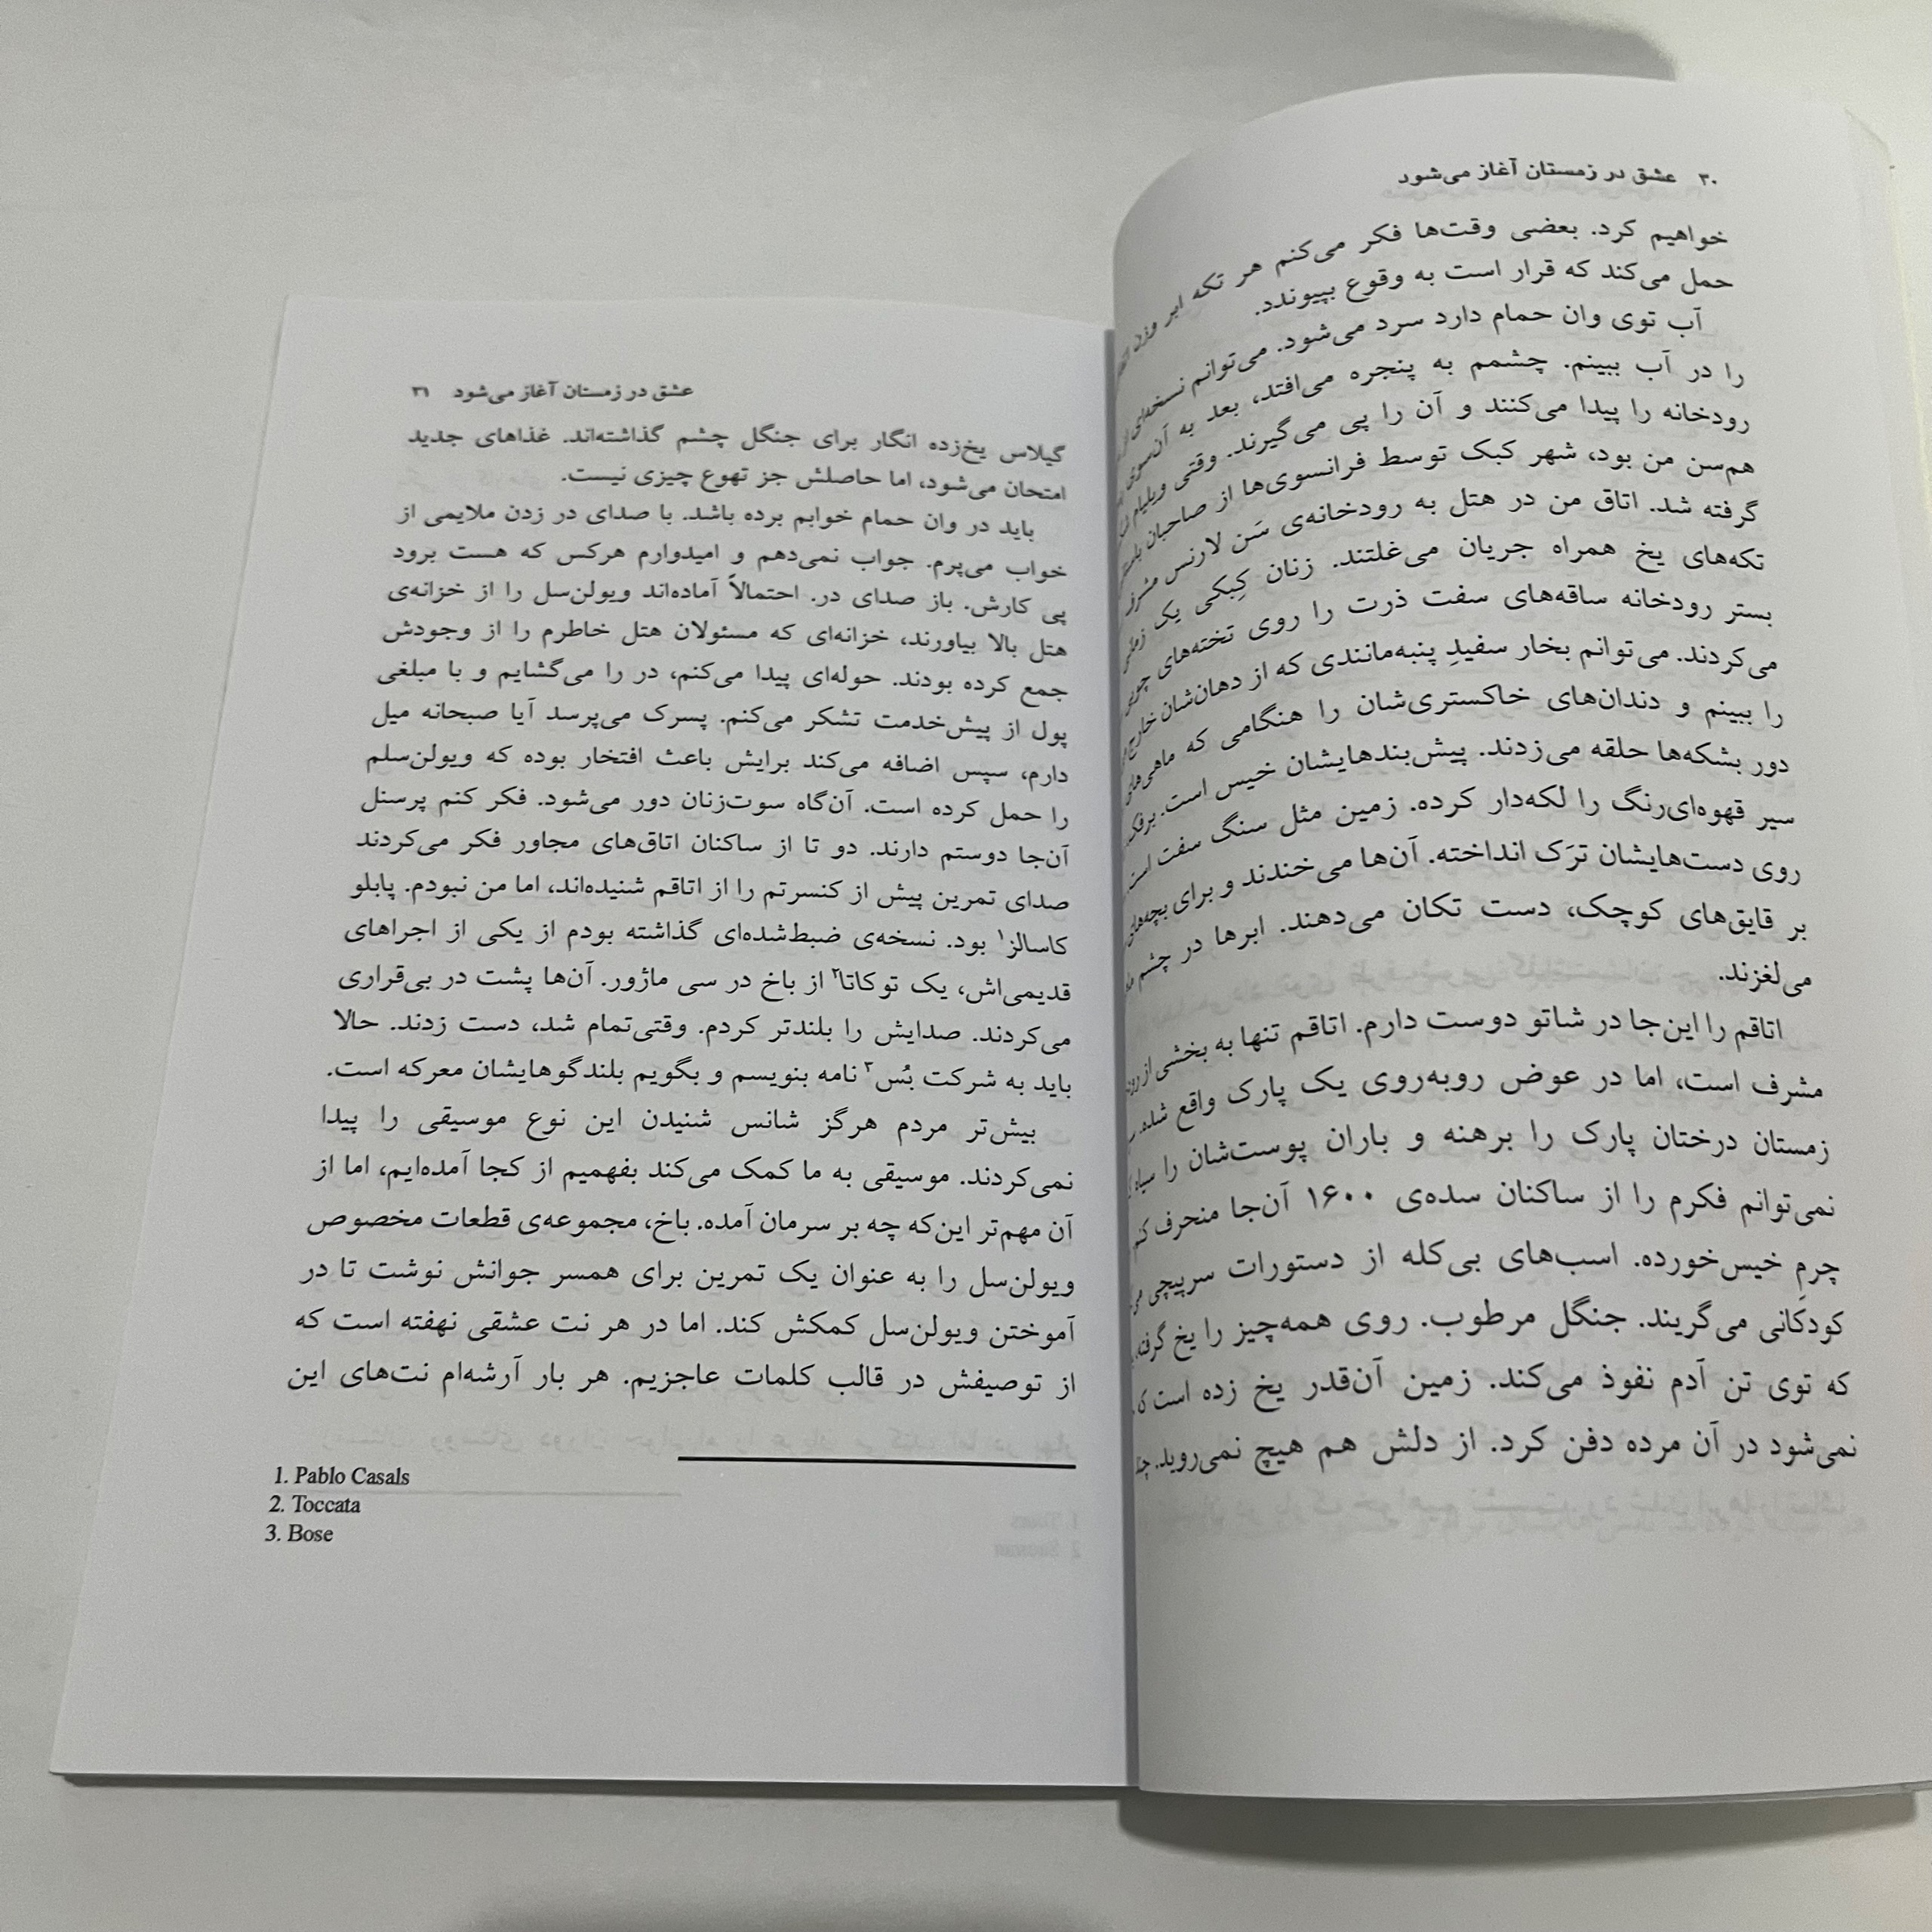 ۳۰ عشق در زمستان آغاز می‌شود
خواهیم کرد. بعضی وقت‌ها فکر می‌کنم هر تکه ابر وزن
حمل می‌کند که قرار است به وقوع بپیوندد.
آب توی وان حمام دارد سرد می‌شود. می‌توانم نسخه‌ای
را در آب ببینم. چشمم به پنجره می‌افتد، بعد به آن‌سوی
رودخانه را پیدا می‌کنند و آن را پی می‌گیرند. وقتی ویلیام
هم‌سن من بود، شهر کبک توسط فرانسوی‌ها از صاحبان
گرفته شد. اتاق من در هتل به رودخانه‌ی سَن لارنس مشرف
تکه‌های یخ همراه جریان می‌غلتند. زنان کِبکی یک زمانی
بستر رودخانه ساقه‌های سفت ذرت را روی تخته‌های چوبی
می‌کردند. می‌توانم بخار سفیدِ پنبه‌مانندی که از دهان‌شان خارج
را ببینم و دندان‌های خاکستری‌شان را هنگامی که ماهی‌های
دور بشکه‌ها حلقه می‌زدند. پیش‌بندهایشان خیس است. برفک
سیر قهوه‌ای‌رنگ را لکه‌دار کرده. زمین مثل سنگ سفت است
روی دست‌هایشان ترَک انداخته. آن‌ها می‌خندند و برای بچه‌های
بر قایق‌های کوچک، دست تکان می‌دهند. ابرها در چشم
می‌لغزند.
اتاقم را این‌جا در شاتو دوست دارم. اتاقم تنها به بخشی از
مشرف است، اما در عوض روبه‌روی یک پارک واقع شده.
زمستان درختان پارک را برهنه و باران پوست‌شان را سیاه
نمی‌توانم فکرم را از ساکنان سده‌ی ۱۶۰۰ آن‌جا منحرف کنم
چرمِ خیس‌خورده. اسب‌های بی‌کله از دستورات سرپیچی
کودکانی می‌گریند. جنگل مرطوب. روی همه‌چیز را یخ گرفته
که توی تن آدم نفوذ می‌کند. زمین آن‌قدر یخ زده است
نمی‌شود در آن مرده دفن کرد. از دلش هم هیچ نمی‌روید.
عشق در زمستان آغاز می‌شود ۳۱
گیلاس یخ‌زده انگار برای جنگل چشم گذاشته‌اند. غذاهای جدید
امتحان می‌شود، اما حاصلش جز تهوع چیزی نیست.
باید در وان حمام خوابم برده باشد. با صدای در زدن ملایمی از
خواب می‌پرم. جواب نمی‌دهم و امیدوارم هرکس که هست برود
پی کارش. باز صدای در. احتمالاً آماده‌اند ویولن‌سل را از خزانه‌ی
هتل بالا بیاورند، خزانه‌ای که مسئولان هتل خاطرم را از وجودش
جمع کرده بودند. حوله‌ای پیدا می‌کنم، در را می‌گشایم و با مبلغی
پول از پیش‌خدمت تشکر می‌کنم. پسرک می‌پرسد آیا صبحانه میل
دارم، سپس اضافه می‌کند برایش باعث افتخار بوده که ویولن‌سلم
را حمل کرده است. آن‌گاه سوت‌زنان دور می‌شود. فکر کنم پرسنل
آن‌جا دوستم دارند. دو تا از ساکنان اتاق‌های مجاور فکر می‌کردند
صدای تمرین پیش از کنسرتم را از اتاقم شنیده‌اند، اما من نبودم. پابلو
کاسالز۱ بود. نسخه‌ی ضبط‌شده‌ای گذاشته بودم از یکی از اجراهای
قدیمی‌اش، یک توکاتا۲ از باخ در سی ماژور. آن‌ها پشت در بی‌قراری
می‌کردند. صدایش را بلندتر کردم. وقتی‌تمام شد، دست زدند. حالا
باید به شرکت بُس۳ نامه بنویسم و بگویم بلندگوهایشان معرکه است.
بیش‌تر مردم هرگز شانس شنیدن این نوع موسیقی را پیدا
نمی‌کردند. موسیقی به ما کمک می‌کند بفهمیم از کجا آمده‌ایم، اما از
آن مهم‌تر این‌که چه بر سرمان آمده. باخ، مجموعه‌ی قطعات مخصوص
ویولن‌سل را به عنوان یک تمرین برای همسر جوانش نوشت تا در
آموختن ویولن‌سل کمکش کند. اما در هر نت عشقی نهفته است که
از توصیفش در قالب کلمات عاجزیم. هر بار آرشه‌ام نت‌های این
1. Pablo Casals
2. Toccata
3. Bose